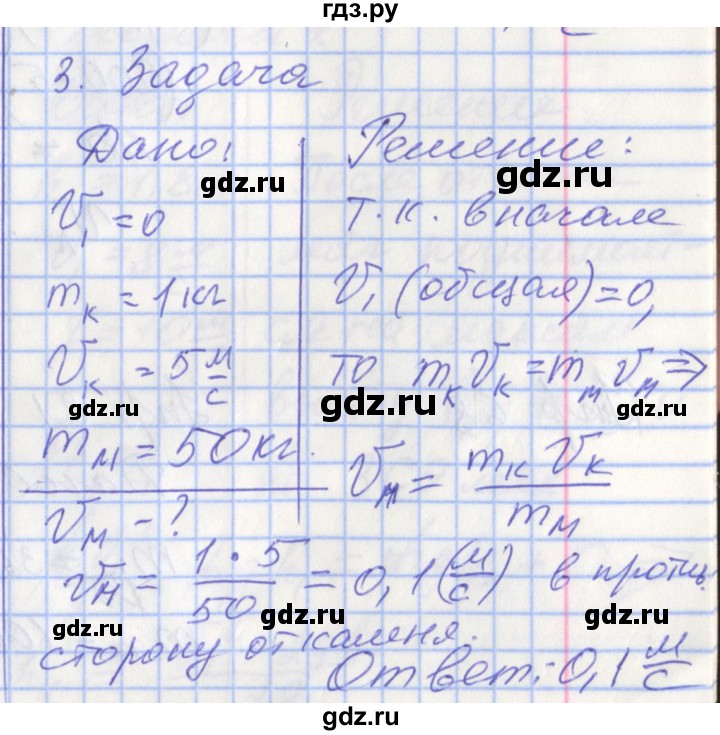 гдз.ру
3. Задача
Дано:
V₁ = 0
mк = 1 кг
Vк = 5 м/с
mм = 50 кг.
Vм - ?
Решение:
т.к. вначале
V₁ (общая) = 0,
то mк Vк = mм Vм ⇒
Vм = mк Vк / mм
Vм = 1 · 5 / 50 = 0,1 (м/с) в против.
сторону от камня.
Ответ: 0,1 м/с
gdz.ru
gdz.ru
gdz.ru
gdz.ru
gdz.ru
gdz.ru
gdz.ru
gdz.ru
gdz.ru
gdz.ru
gdz.ru
gdz.ru